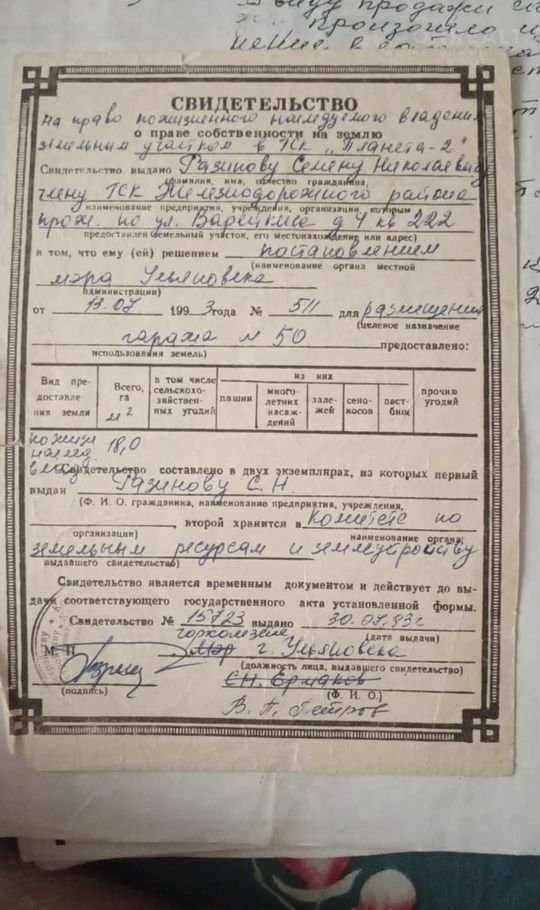 Ввиду продажи
произошло
СВИДЕТЕЛЬСТВО
на право пожизненного наследуемого владения
о праве собственности на землю
земельным участком в ГСК „Планета-2"
Свидетельство выдано Разинову Семену Николаевичу
фамилия, имя, отчество гражданина,
члену ГСК Железнодорожного района
наименование предприятия, учреждения, организации, которым
прож. по ул. Варейкиса д 4 кв 222
предоставлен земельный участок, его местонахождение или адрес)
в том, что ему (ей) решением постановлением
(наименование органа местной
мэра Ульяновска
администрации)
от 13.07 1993 года № 511 для размещения
(целевое назначение
гаража № 50 предоставлено:
использования земель)
Вид предоставления земли
Всего, га м²
в том числе сельскохозяйственных угодий
из них
пашни
многолетних насаждений
залежей
сенокосов
пастбищ
прочих угодий
пожизн 18,0
наслед
влад
Свидетельство составлено в двух экземплярах, из которых первый
выдан Разинову С. Н.
(Ф. И. О. гражданина, наименование предприятия, учреждения,
, второй хранится в Комитете по
организации) наименование органа,
земельным ресурсам и землеустройству
выдавшего свидетельство)
Свидетельство является временным документом и действует до вы-
дачи соответствующего государственного акта установленной формы.
Свидетельство № 15723 выдано 30.07.93г
(дата выдачи)
горкомзема
М. П. Мэр г. Ульяновска
(должность лица, выдавшего свидетельство)
С.Н. Ермаков
(подпись) (Ф. И. О.)
В. П. Петров